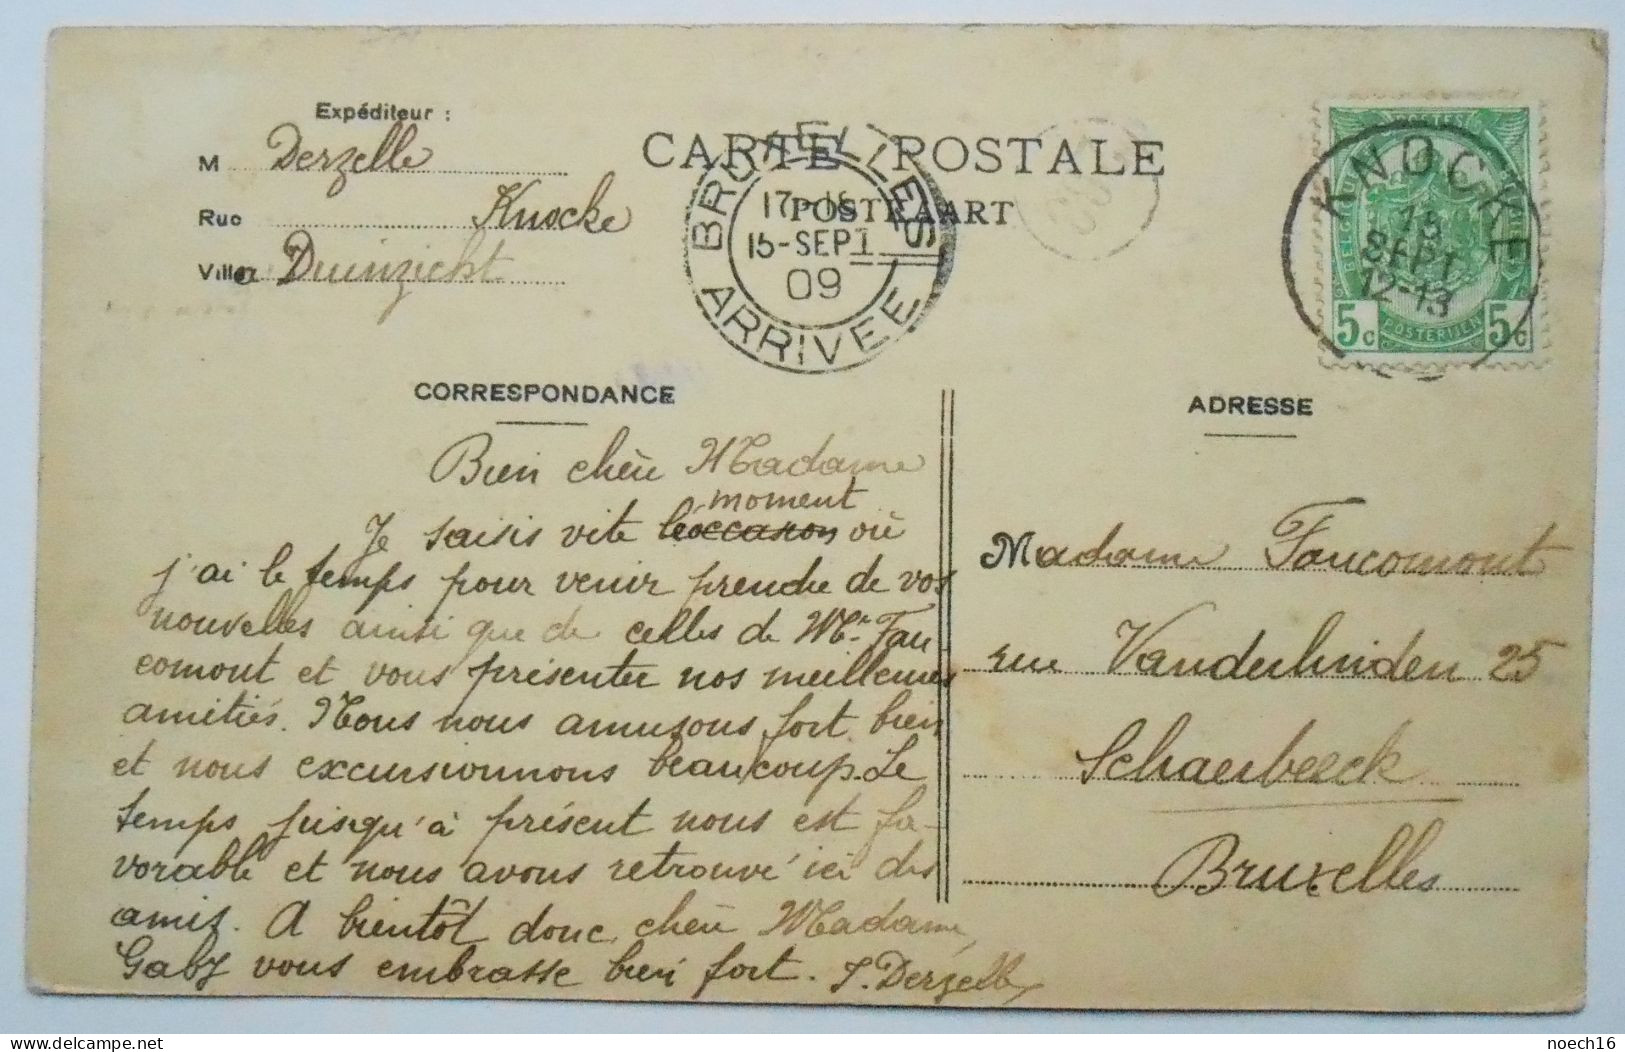 Expéditeur :
M Derzelle
Rue Knocke
Villa Duinzicht
CARTE POSTALE
POSTKAART
BRUXELLES
17-18
15-SEPT
09
ARRIVEE
POSTES
KNOCKE
15
SEPT
12-13
5c POSTERIJEN 5c
CORRESPONDANCE
Bien chère Madame
moment
Je saisis vite l'occasion où
j'ai le temps pour venir prendre de vos
nouvelles ainsi que de celles de Mr. Fau-
comont et vous présenter nos meilleures
amitiés. Nous nous amusons fort bien
et nous excursionnons beaucoup. Le
temps jusqu'à présent nous est fa-
vorable et nous avons retrouvé ici des
amis. A bientôt donc, chère Madame,
Gaby vous embrasse bien fort. J. Derzelle
ADRESSE
Madame Faucomont
rue Vanderlinden 25
Schaerbeeck
Bruxelles
delcampe.net
noech16